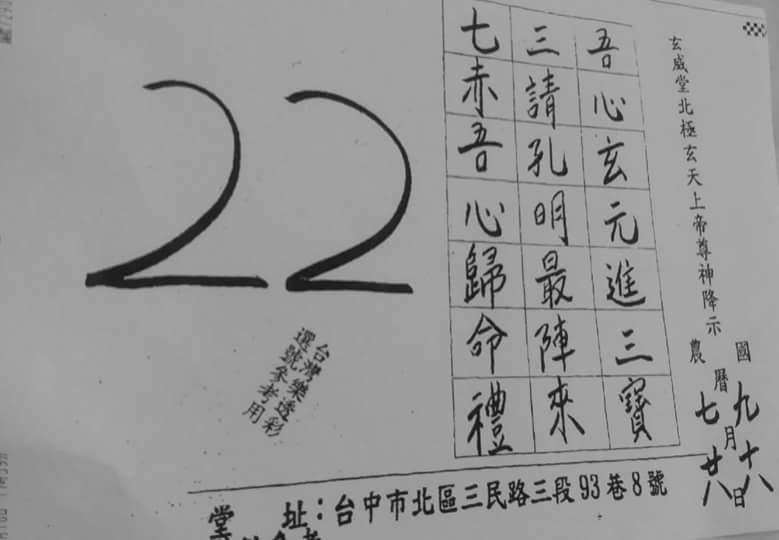 玄威堂北極玄天上帝尊神降示
國
農
曆
九
七
月
十八
廿八
日
吾心玄元進三寶
三請孔明最陣來
七赤吾心歸命禮
22
台灣樂透彩
選號參考用
堂 址：台中市北區三民路三段93巷8號